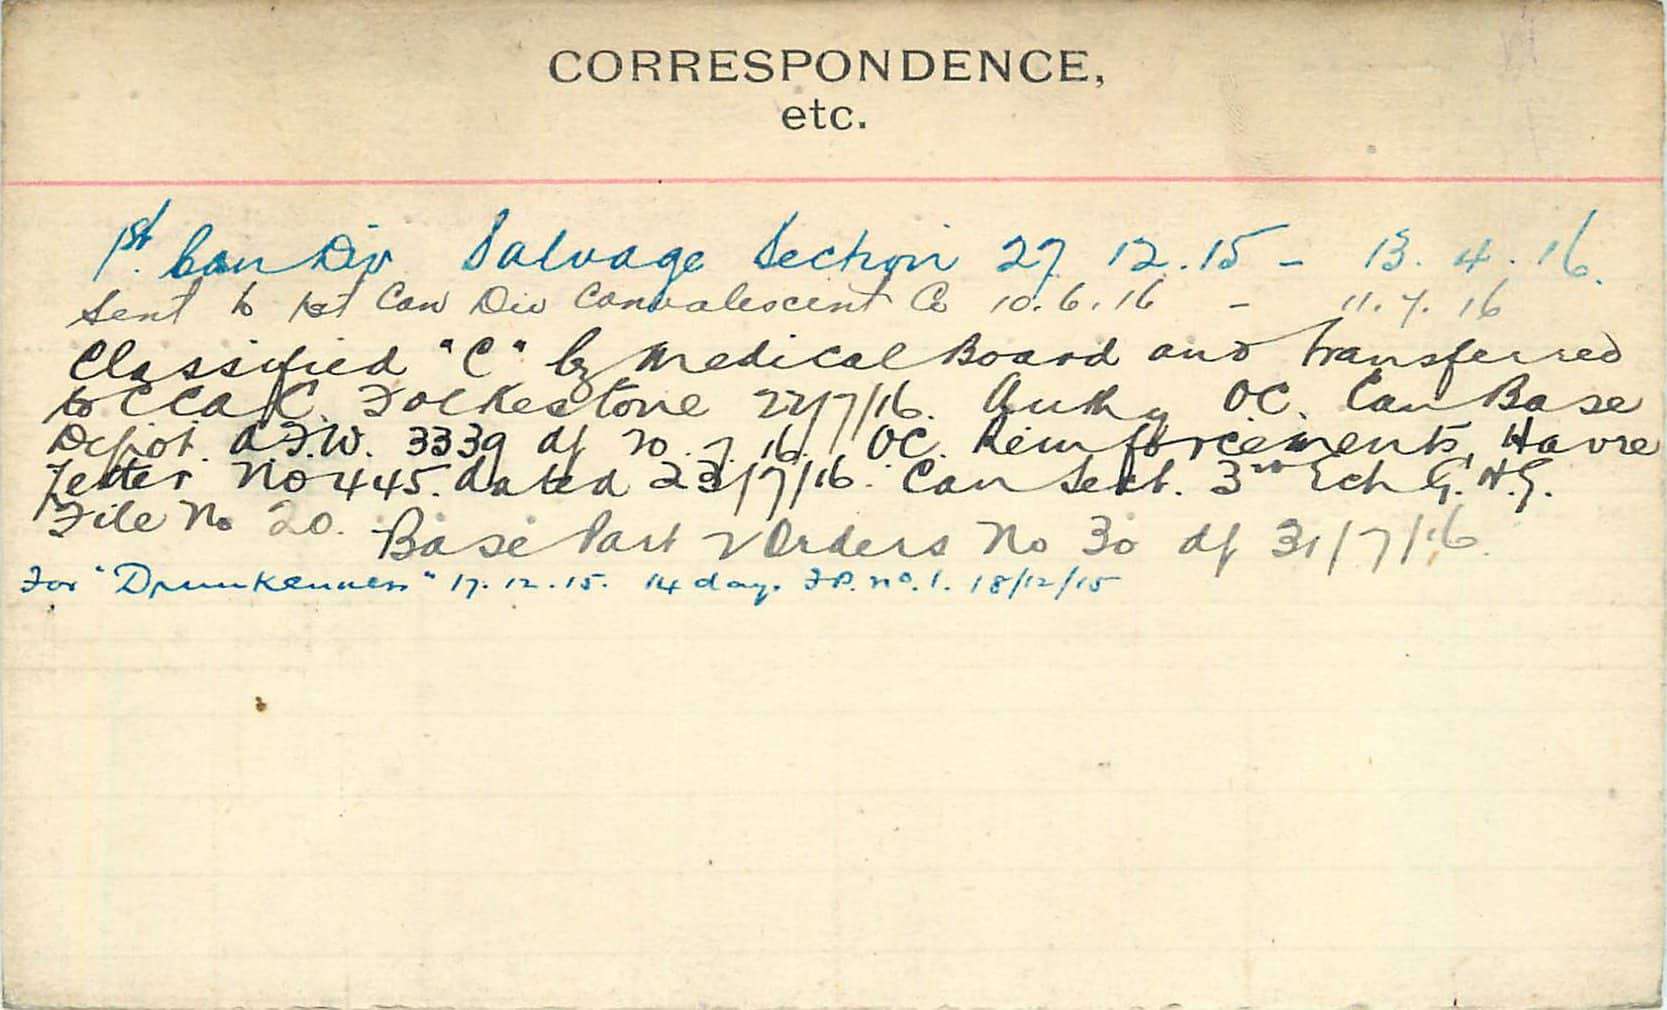 CORRESPONDENCE,
etc.
1st Can Div Salvage Section 27.12.15 - 13.4.16.
Sent to 1st Can Div Convalescent Co 10.6.16 - 11.7.16
Classified "C" by Medical Board and transferred
to CCAC. Folkestone 22/7/16. Authy OC. Can Base
Depot. A.F.W. 3339 df 20.7.16. OC. Reinforcements, Havre
Letter No 445. dated 23/7/16. Can Sect. 3rd Ech G.H.Q.
File No 20. Base Part 2 Orders No 30 df 31/7/16.
For "Drunkenness" 17.12.15. 14 days F.P. No. 1. 18/12/15